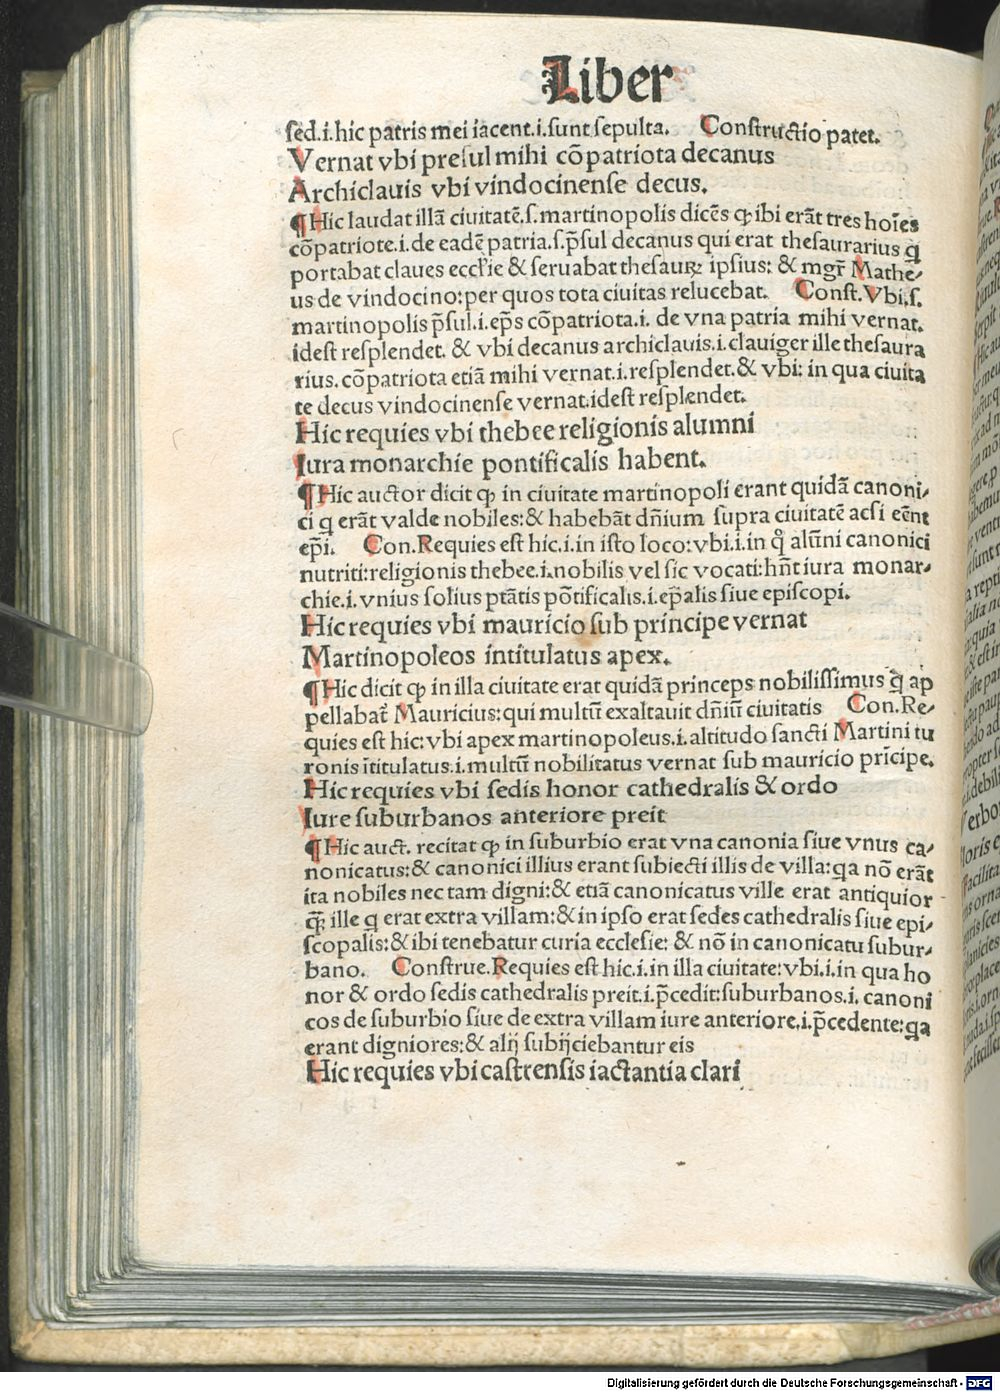 Liber
sed.i.hic patris mei iacent.i.sunt sepulta. Constructio patet.
Vernat vbi presul mihi cōpatriota decanus
Archiclauis vbi vindocinense decus.
¶Hic laudat illā ciuitatē.s.martinopolis dicēs ꝙ ibi erāt tres hoīes
cōpatriote.i.de eadē patria.s.p̄sul decanus qui erat thesaurarius q̄
portabat claues eccl'ie & seruabat thesauꝝ ipsius: & mgr̄ Mathe/
us de vindocino:per quos tota ciuitas relucebat. Const.Vbi.s.
martinopolis p̄sul.i.ep̄s cōpatriota.i. de vna patria mihi vernat.
idest resplendet. & vbi decanus archiclauis.i.clauiger ille thesaura
rius.cōpatriota etiā mihi vernat.i.resplendet.& vbi: in qua ciuita
te decus vindocinense vernat.idest resplendet.
Hic requies vbi thebee religionis alumni
Iura monarchie pontificalis habent.
¶Hic auctor dicit ꝙ in ciuitate martinopoli erant quidā canoni/
ci q erāt valde nobiles:& habebāt dn̄ium supra ciuitatē acsi eēnt
ep̄i. Con.Requies est hic.i.in isto loco:vbi.i.in qͦ alūni canonici
nutriti:religionis thebee.i.nobilis vel sic vocati:hn̄t iura monar/
chie.i.vnius solius ptātis pōtificalis.i.ep̄alis siue episcopi.
Hic requies vbi mauricio sub principe vernat
Martinopoleos intitulatus apex.
¶Hic dicit ꝙ in illa ciuitate erat quidā princeps nobilissimus q̄ ap
pellabat᷑ Mauricius:qui multū exaltauit dn̄iū ciuitatis Con.Re/
quies est hic:vbi apex martinopoleus.i.altitudo sancti Martini tu
ronis ītitulatus.i.multū nobilitatus vernat sub mauricio prīcipe.
Hic requies vbi sedis honor cathedralis & ordo
Iure suburbanos anteriore preit
¶Hic auct. recitat ꝙ in suburbio erat vna canonia siue vnus ca/
nonicatus:& canonici illius erant subiecti illis de villa:qa nō erāt
ita nobiles nec tam digni:& etiā canonicatus ville erat antiquior
ꝙ̄ ille q erat extra villam:& in ipso erat sedes cathedralis siue epi/
scopalis:& ibi tenebatur curia ecclesie: & nō in canonicatu subur/
bano. Construe.Requies est hic.i.in illa ciuitate:vbi.i.in qua ho
nor & ordo sedis cathedralis preit.i.p̄cedit:suburbanos.i. canoni
cos de suburbio siue de extra villam iure anteriore.i.p̄cedente:qa
erant digniores:& alij subijciebantur eis
Hic requies vbi castrensis iactantia clari
Digitalisierung gefördert durch die Deutsche Forschungsgemeinschaft - DFG